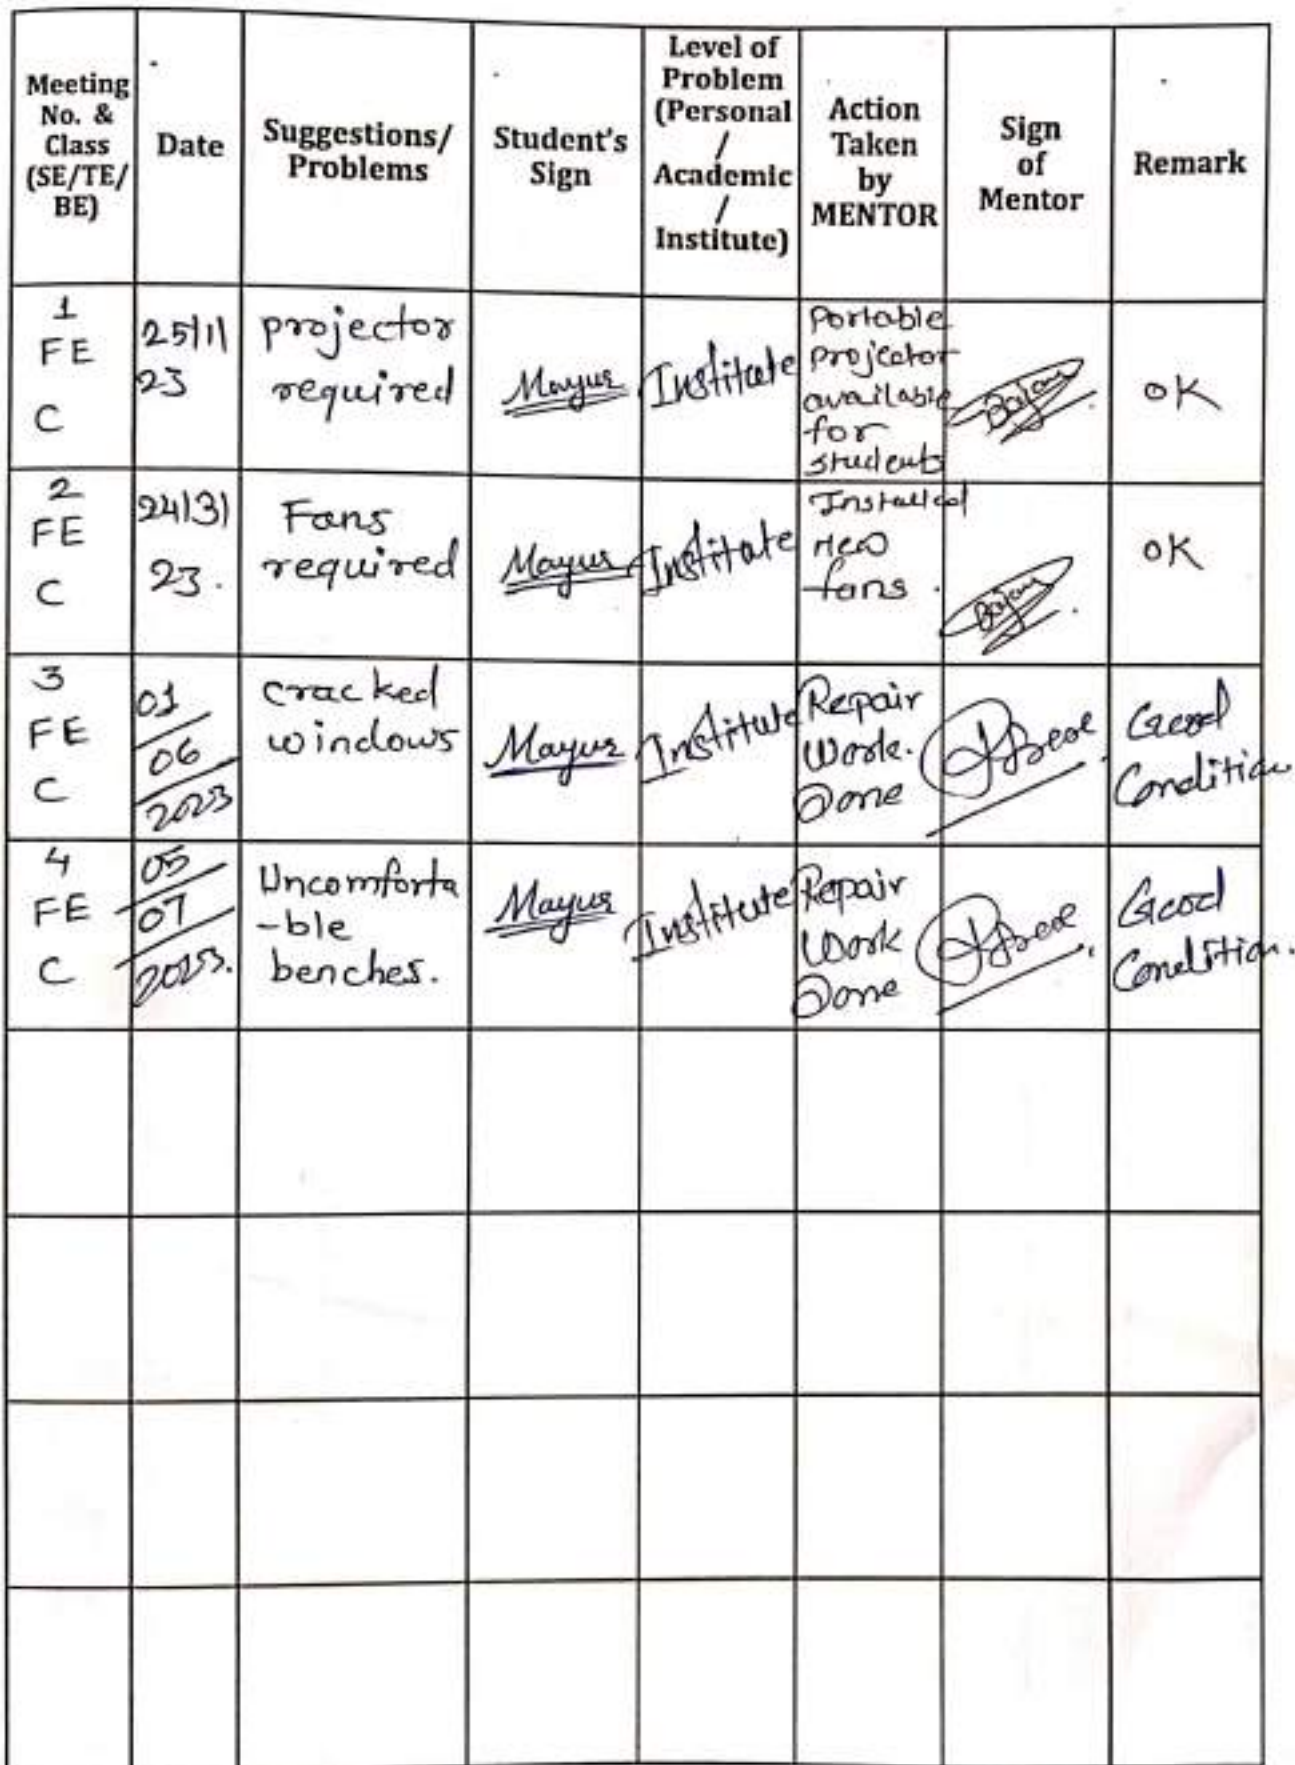 Meeting
No. &
Class
(SE/TE/
BE)
Date
Suggestions/
Problems
Student's
Sign
Level of
Problem
(Personal
/
Academic
/
Institute)
Action
Taken
by
MENTOR
Sign
of
Mentor
Remark
1
FE
C
25/1/
23
projector
required
Mayur
Institute
Portable
projector
available
for
students
OK
2
FE
C
24/3/
23.
Fans
required
Mayur
Institute
Installed
new
fans.
OK
3
FE
C
01
06
2023
cracked
windows
Mayur
Institute
Repair
Work.
Done
Good
Condition
4
FE
C
05
07
2023.
Uncomforta
-ble
benches.
Mayur
Institute
Repair
Work
Done
Good
Condition.